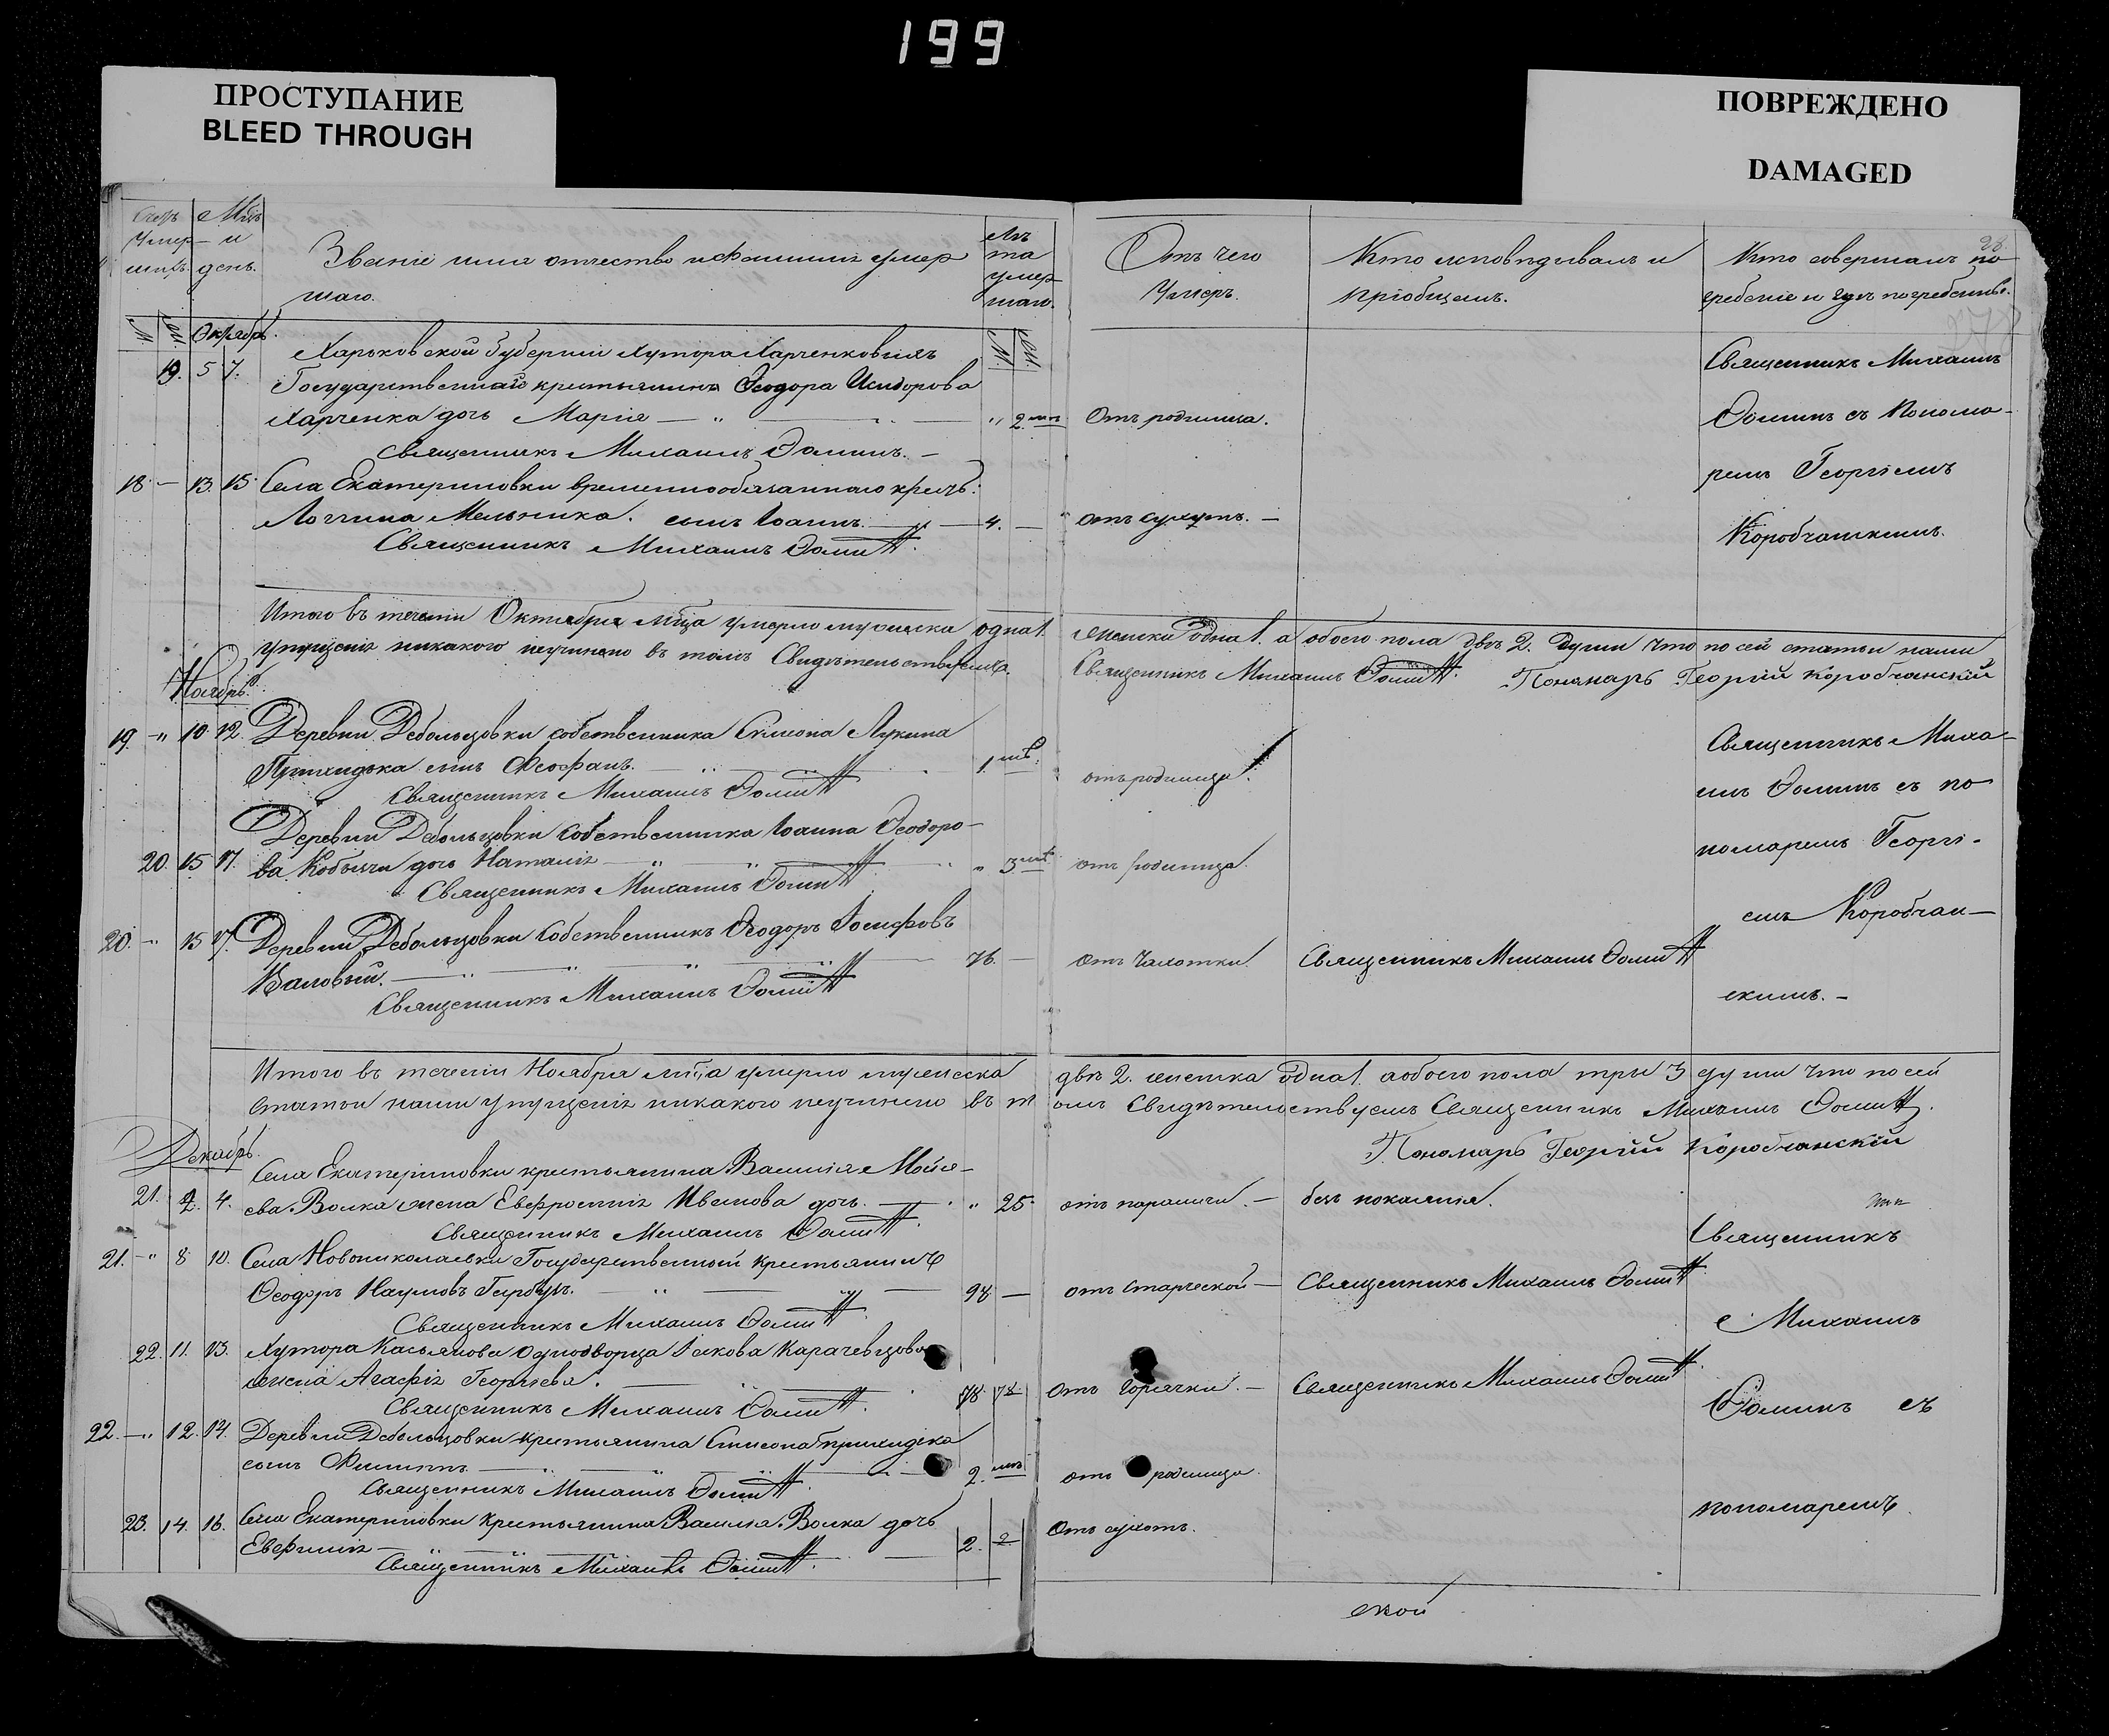 199
ПРОСТУПАНИЕ
BLEED THROUGH
ПОВРЕЖДЕНО
DAMAGED
Счетъ умершихъ
Мѣс. и день.
Званіе имя отчество и фамилія умер
шаго.
Лѣта умершаго.
Отъ чего
умеръ.
Кто исповѣдывалъ и
пріобщалъ.
Кто совершалъ по
гребеніе и гдѣ погребены.
Октябрь.
19. 5 7. Харьковской Губерніи Хутора Харченковыхъ
Государственнаго крестьянина Ѳеодора Исидорова
Харченка дочь Марія — „ — „ 2. Отъ родимца.
Священникъ Михаилъ Ѳоминъ. —
Священникъ Михаилъ
Ѳоминъ съ Понома-
ремъ Георгіемъ
Коробчанскимъ.
18. — 13. 15. Села Екатериновки временнообязаннаго крест:
Логгина Мельника. сынъ Іоаннъ. — „ — 4. — отъ сухотъ. —
Священникъ Михаилъ Ѳоминъ.
Итого въ теченіи Октября мѣца умерло мужеска одна 1. женска одна 1. а обоего пола двѣ 2. души что по сей статьи нами
упущенія никакого неучинено въ томъ Свидѣтельствуемъ. Священникъ Михаилъ Ѳоминъ. Пономарь Георгій Коробчанскій
Ноябрь.
19. — „ 10. 12. Деревни Дебольцовки собственника Симеона Лукина
Прихидька сынъ Ѳеофанъ. — „ — „ 1. отъ родимца.
Священникъ Михаилъ Ѳоминъ
Священникъ Миха-
илъ Ѳоминъ съ по
номаремъ Георгі-
емъ Коробчан—
скимъ. —
Деревни Дебольцовки Собственника Іоанна Ѳеодоро-
20. 15 17. ва Кобыли дочь Наталія — „ „ — „ 3 отъ родимца.
Священникъ Михаилъ Ѳоминъ
20. — „ 15 17. Деревни Дебольцовки Собственникъ Ѳеодоръ Іосифовъ
Валовый. — „ „ „ „ — 76. — отъ Чахотки. Священникъ Михаилъ Ѳоминъ
Священникъ Михаилъ Ѳоминъ
Итого въ теченіи Ноября мѣца умерло мужеска двѣ 2. женска одна 1. а обоего пола три 3 души что по сей
статьи нами упущенія никакого неучинено въ томъ Свидѣтельствуемъ Священникъ Михаилъ Ѳоминъ.
Пономарь Георгій Коробчанскій
Декабрь.
Села Екатериновки крестьянина Василія Мойсе-
21. 2. 4. ева Волка жена Евфросинія Иванова дочь. — „ 25. отъ паралича. — безъ покаянія.
Священникъ Михаилъ Ѳоминъ.
Священникъ
Михаилъ
Ѳоминъ съ
пономаремъ.
21. — „ 8 10. Села Новониколаевки Государственный крестьянинъ
Ѳеодоръ Наумовъ Гарбузъ. — „ — „ — 98 — отъ старческой — Священникъ Михаилъ Ѳоминъ
Священникъ Михаилъ Ѳоминъ
22. 11. 13. Хутора Касьянова однодворца Іакова Карачевцова
жена Агафія Георгіева. — „ — 78. 78 отъ горячки. — Священникъ Михаилъ Ѳоминъ
Священникъ Михаилъ Ѳоминъ.
22. — „ 12. 14. Деревни Дебольцовки крестьянина Симеона Прихидька
сынъ Филиппъ — „ „ „ — 2. отъ родимца.
Священникъ Михаилъ Ѳоминъ.
23. 14. 16. Села Екатериновки крестьянина Василія Волка дочь
Евфимія — 2. 2. Отъ сухотъ.
Священникъ Михаилъ Ѳоминъ.
ской